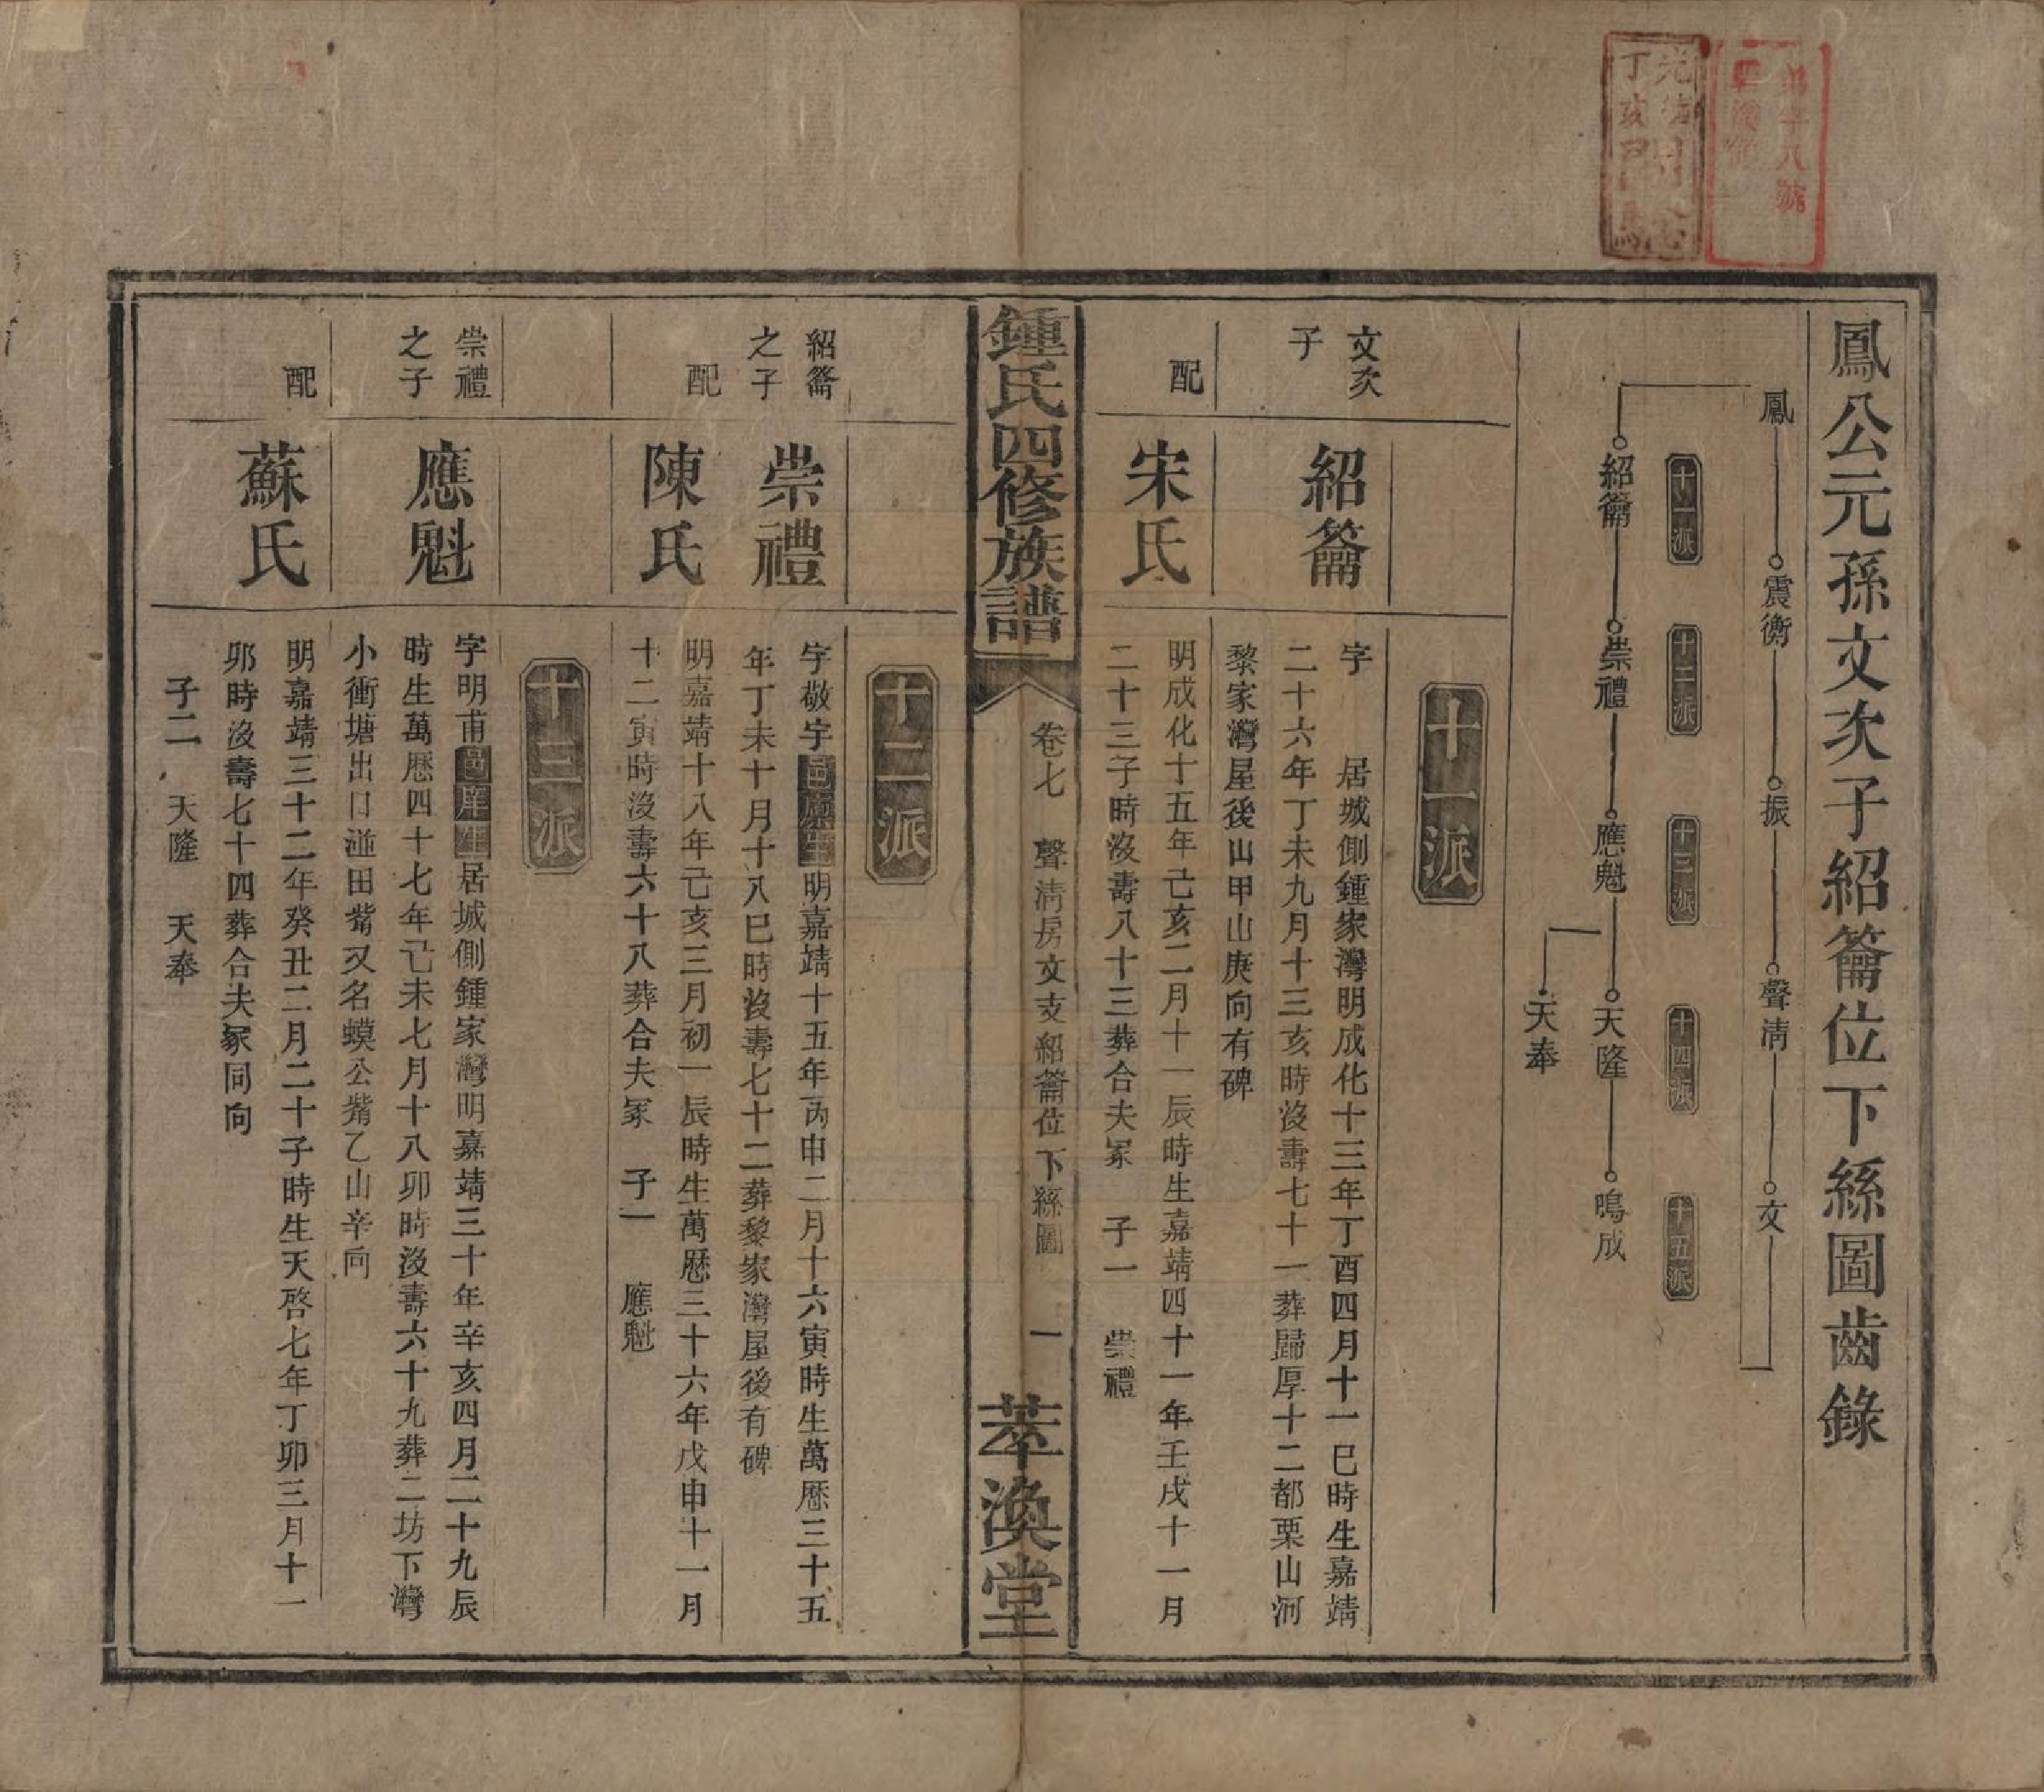 鳳公元孫文次子紹籥位下絲圖齒錄
鳳 震衡 振 聲清 文
十一派 十二派 十三派 十四派 十五派
紹籥 崇禮 應魁 天隆 鳴成
天奉
十一派
文次子
紹籥
字 居城側鍾家灣明成化十三年丁酉四月十一巳時生嘉靖
二十六年丁未九月十三亥時沒壽七十一葬歸厚十二都栗山河
黎家灣屋後山甲山庚向有碑
配
宋氏
明成化十五年己亥二月十一辰時生嘉靖四十一年壬戌十一月
二十三子時沒壽八十三葬合夫冢 子一 崇禮
鍾氏四修族譜
卷七 聲清房文支紹籥位下絲圖 一
萃渙堂
十二派
紹籥之子
崇禮
字敬宇邑廩生明嘉靖十五年丙申二月十六寅時生萬歷三十五
年丁未十月十八巳時沒壽七十二葬黎家灣屋後有碑
配
陳氏
明嘉靖十八年己亥三月初一辰時生萬歷三十六年戊申十一月
十二寅時沒壽六十八葬合夫冢 子一 應魁
十三派
崇禮之子
應魁
字明甫邑庠生居城側鍾家灣明嘉靖三十年辛亥四月二十九辰
時生萬歷四十七年己未七月十八卯時沒壽六十九葬二坊下灣
小衝塘出口逰田觜又名蟆公觜乙山辛向
配
蘇氏
明嘉靖三十二年癸丑二月二十子時生天啓七年丁卯三月十一
卯時沒壽七十四葬合夫冢同向
子二 天隆 天奉